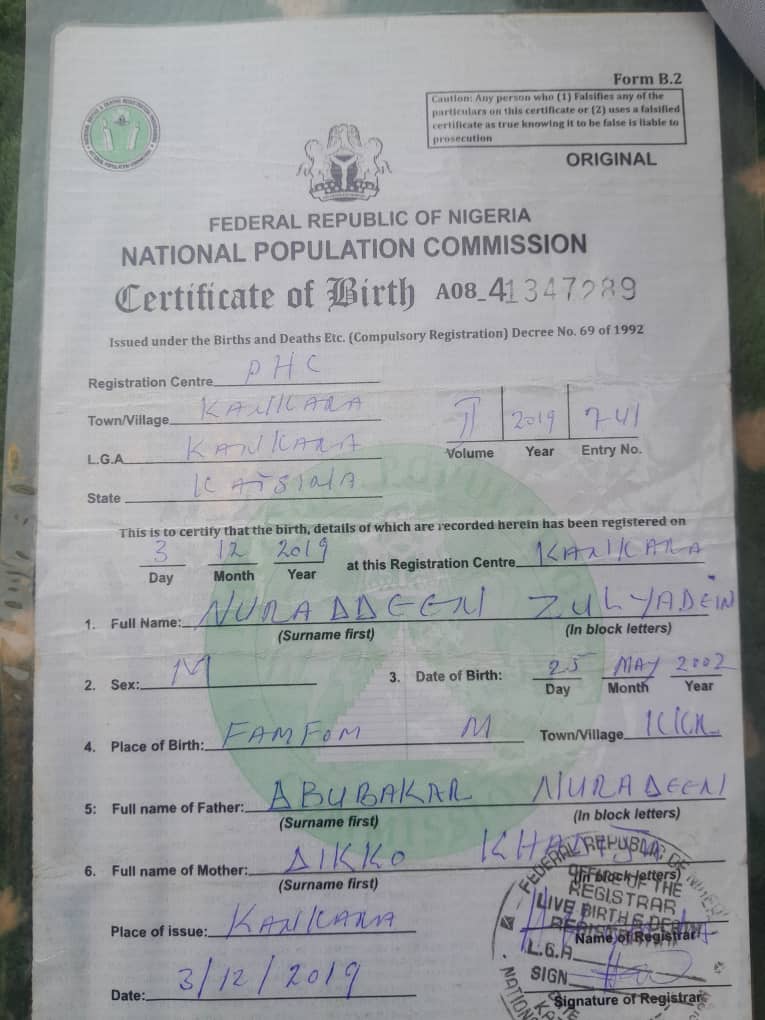 Form B.2
Caution: Any person who (1) Falsifies any of the
particulars on this certificate or (2) uses a falsified
certificate as true knowing it to be false is liable to
prosecution
ORIGINAL
FEDERAL REPUBLIC OF NIGERIA
NATIONAL POPULATION COMMISSION
Certificate of Birth A08_41347289
Issued under the Births and Deaths Etc. (Compulsory Registration) Decree No. 69 of 1992
Registration Centre PHC
Town/Village KANKARA
II 2019 741
Volume Year Entry No.
L.G.A KANKARA
State KATSINA
This is to certify that the birth, details of which are recorded herein has been registered on
3 12 2019 at this Registration Centre KANKARA
Day Month Year
1. Full Name: NURADDEEN ZULYADEIN
(Surname first) (In block letters)
2. Sex: M 3. Date of Birth: 25 MAY 2002
Day Month Year
4. Place of Birth: FAMFOM M Town/Village KKR
5: Full name of Father: ABUBAKAR NURADEEN
(Surname first) (In block letters)
6. Full name of Mother: DIKKO
(Surname first) (In block letters)
FEDERAL REPUBLIC OF
OFFICE OF THE
REGISTRAR
LIVE BIRTH & DEATH
Place of issue: KANKARA
Name of Registrar
L.G.A
SIGN
Date: 3/12/2019
Signature of Registrar